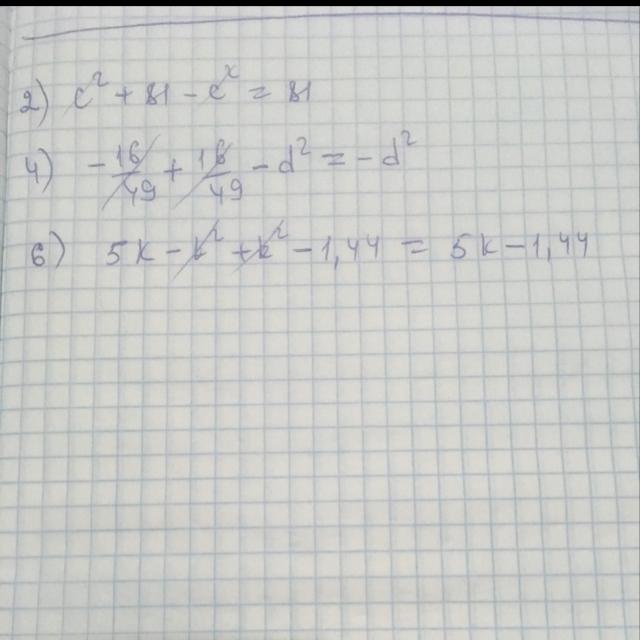 2) c² + 81 - c² = 81
4) -16/49 + 16/49 - d² = -d²
6) 5k - k² + k² - 1,44 = 5k - 1,44